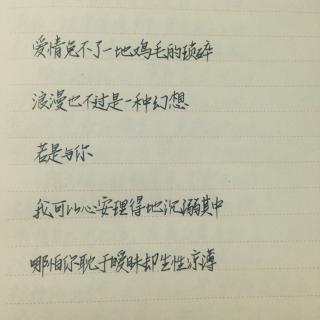 爱情免不了一地鸡毛的琐碎
浪漫也不过是一种幻想
若是与你
我可以心安理得地沉溺其中
哪怕你耽于暧昧却生性凉薄